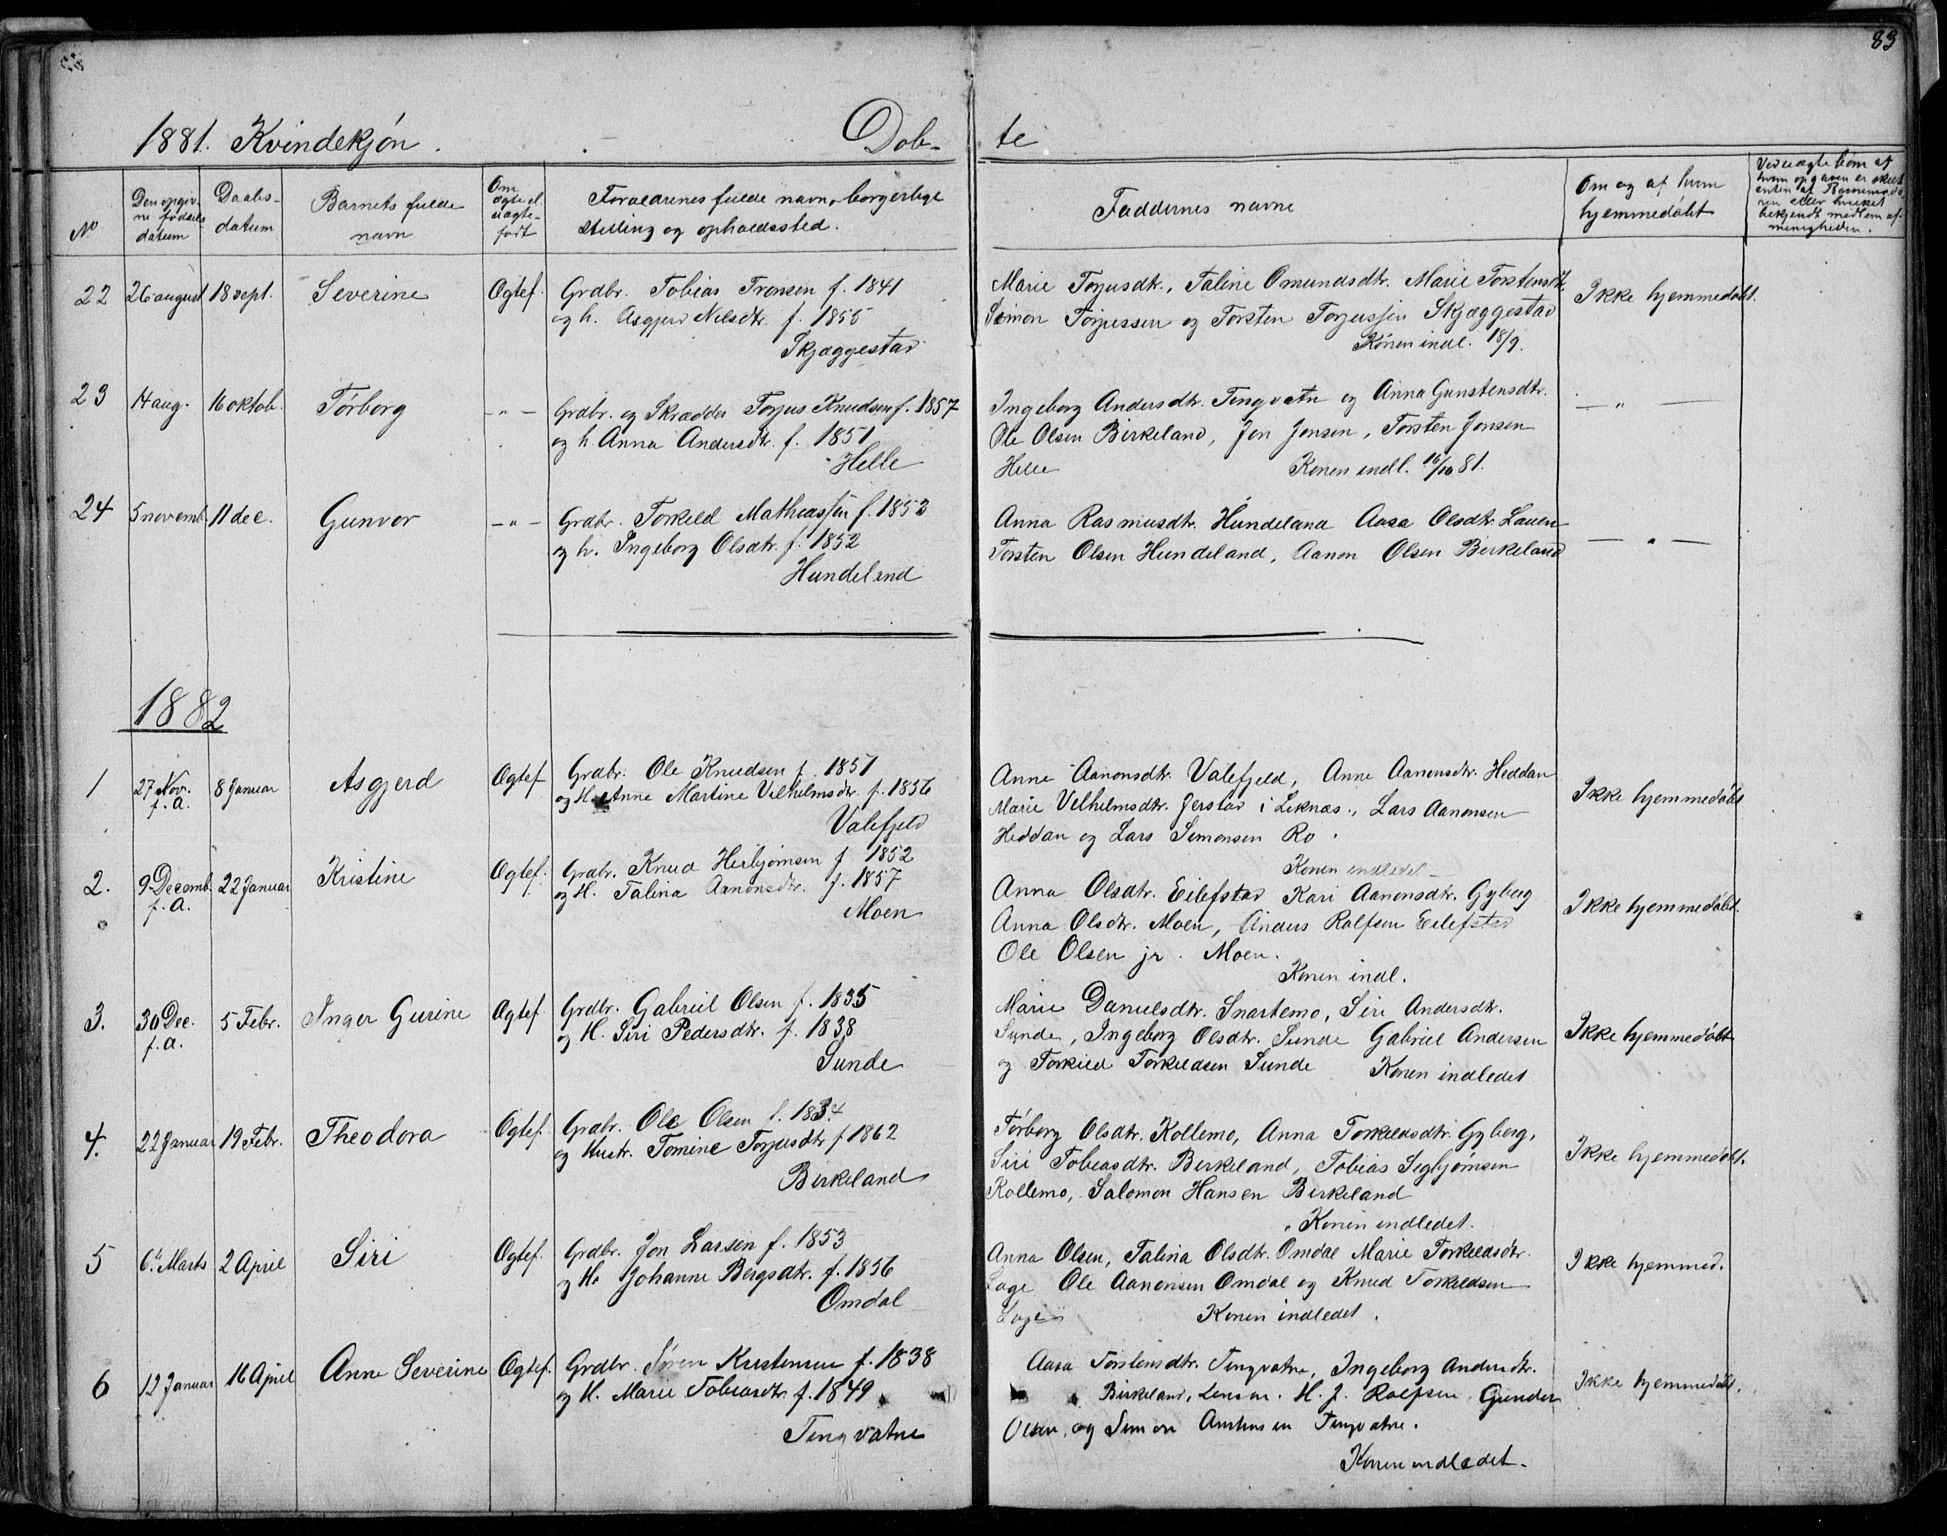 83
1881. Kvindekjön. Döb- te
No
Den opgiv-
ne fødsels
datum
Daabs-
datum
Barnets fulde
navn
Om
ægte el
uægte-
født
Forældrenes fulde navn, borgerlige
stilling og opholdssted.
Faddernes navne
Om og af hvem
hjemmedøbt
Ved uægte børn af
hvem opgaven er skeet
enten af Barnemode-
ren eller hvilket
bekjendt medlem af
menigheden.
22 26 august 18 sept. Severine Ogtef. Grdbr. Tobias Tronsen f. 1841
og h. Asgjerd Nilsdtr. f. 1855
Skjæggestad
Marie Torjusdt., Taline Omundsdtr. Marie Torstensdt.
Simon Torjussen og Torsten Torjussen Skjæggestad
Konen indl. 18/9.
Ikke hjemmedöbt.
23 14 aug. 16 oktob. Törborg —"— Grdbr. og Skrædder Torjus Knudsen f. 1857
og h. Anna Andersdtr. f. 1851
Helle
Ingeborg Andersdtr. Tingvatn og Anna Gunstensdtr.
Ole Olsen Birkeland, Jon Jonsen, Torsten Jonsen
Helle Konen indl. 16/10 81.
—"—
24 5 novemb. 11 dec. Gunvor —"— Grdbr. Torkild Mathiassen f. 1853
og h. Ingeborg Olsdtr. f. 1852
Hundeland
Anna Rasmusdtr. Hundeland Aasa Olsdtr. Lauen
Torsten Olsen Hundeland, Aanon Olsen Birkeland
—"—
1882
1 27 Nov. f. A. 8 Januar Asgjerd Ogtef Grdbr. Ole Knudsen f. 1851
og H. Anne Martine Vilhelmsdtr. f. 1856
Valefjeld
Anne Aanonsdtr. Valefjeld, Anne Aanonsdtr. Heddan
Marie Vilhelmsdtr. Jerstad i Liknæs., Lars Aanonsen
Heddan og Lars Simonsen Ro.
Konen indledet
Ikke hjemmedöbt
2. 9 Decemb. f. A. 22 Januar Kristine Ogtef. Grdbr. Knud Herbjörnsen f. 1852
og H. Talina Aanonsdtr. f. 1857
Moen
Anna Olsdtr. Eilefstad Kari Aanonsdtr. Gyberg
Anna Olsdtr. Moen, Anders Rolfsen Eilefstad
Ole Olsen jr. Moen.
Konen indl.
Ikke hjemmedöbt.
3. 30 Dec. f. a. 5 Febr. Inger Gurine Ogtef. Grdbr. Gabriel Olsen f. 1835
og H. Siri Pedersdtr. f. 1838
Sunde
Marie Danielsdtr. Snartemo, Siri Andersdtr.
Sunde, Ingeborg Olsdtr. Sunde Gabriel Andersen
og Torkild Torkildsen Sunde Konen indledet
Ikke hjemmedöbt
4. 22 Januar 19 Febr. Theodora Ogtef. Grdbr. Ole Olsen f. 1834
og Hustr. Tomine Torjusdtr f 1862
Birkeland
Törborg Olsdtr. Kollemo, Anna Torkildsdtr. Gyberg,
Siri Tobiasdtr. Birkeland, Tobias Segbjörnsen
Kollemo, Salomon Hansen Birkeland
Konen indledet.
Ikke hjemmedöbt.
5 6te Marts 2 April Siri Ogtef. Grdbr. Jon Larsen f. 1853
og H. Johanne Bergsdtr. f. 1856
Omdal
Anna Olsen, Talina Olsdtr. Omdal Marie Torkildsdtr.
Lage Ole Aanonsen Omdal og Knud Torkildsen
Lage Konen indledet.
Ikke hjemmed.
6 12 Januar 16 April Anne Severine Ogtef. Grdbr. Sören Kristensen f. 1838
og H. Marie Tobiasdtr f. 1849
Tingvatne
Aasa Torstensdtr. Tingvatne, Ingeborg Andersdtr.
Birkeland, Lensm. H. J. Rolfsen, Gunder
Olsen, og Simon Tingvatne.
Konen indledet.
Ikke hjemmedöbt.